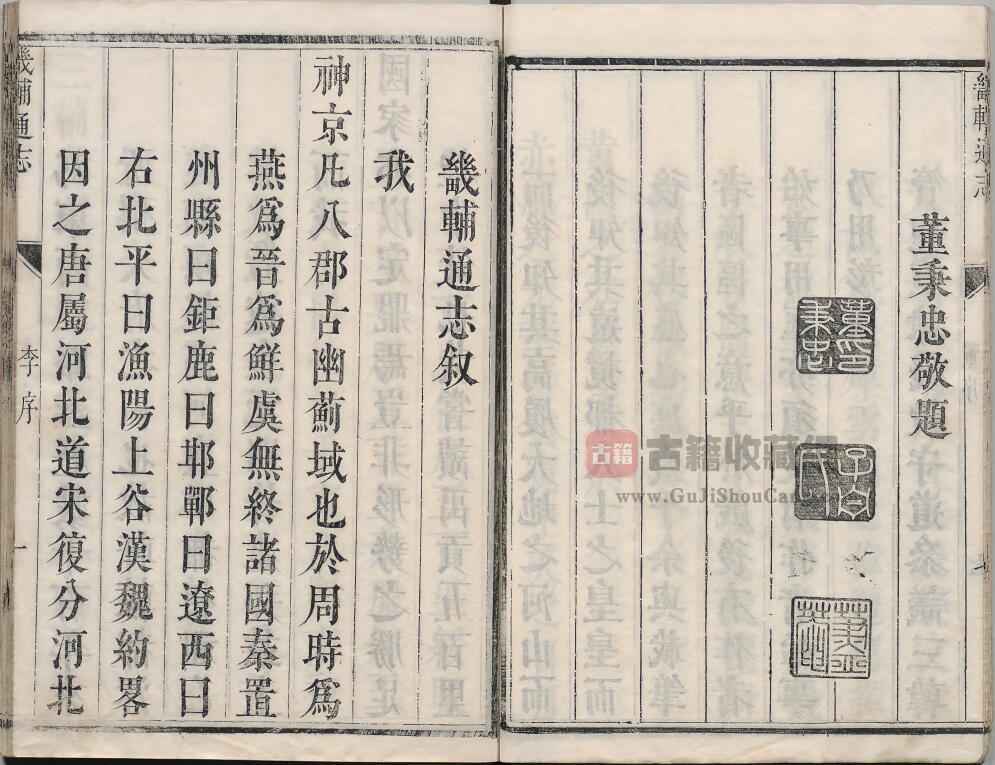 畿輔通志
董秉忠敬題
董印秉忠
古籍
古籍收藏
www.GuJiShouCang
畿輔通志叙
我
神京凡八郡古幽薊域也於周時爲
燕爲晉爲鮮虞無終諸國秦置
州縣曰鉅鹿曰邯鄲曰遼西曰
右北平曰漁陽上谷漢魏約畧
因之唐屬河北道宋復分河北
畿輔通志
李序
一